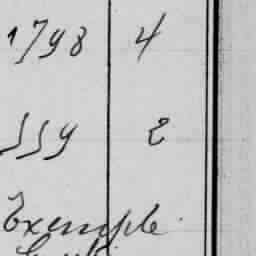 1798 4
559 2
Exemple